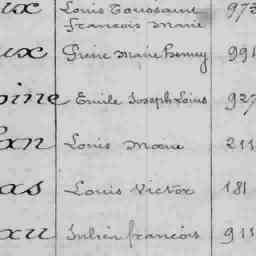 ux Louis Toussaint 973
François Marie
ux Pierre Marie 991
pine Emile Joseph Louis 927
an Louis Marie 211
as Louis Victor 181
au Julien françois 911